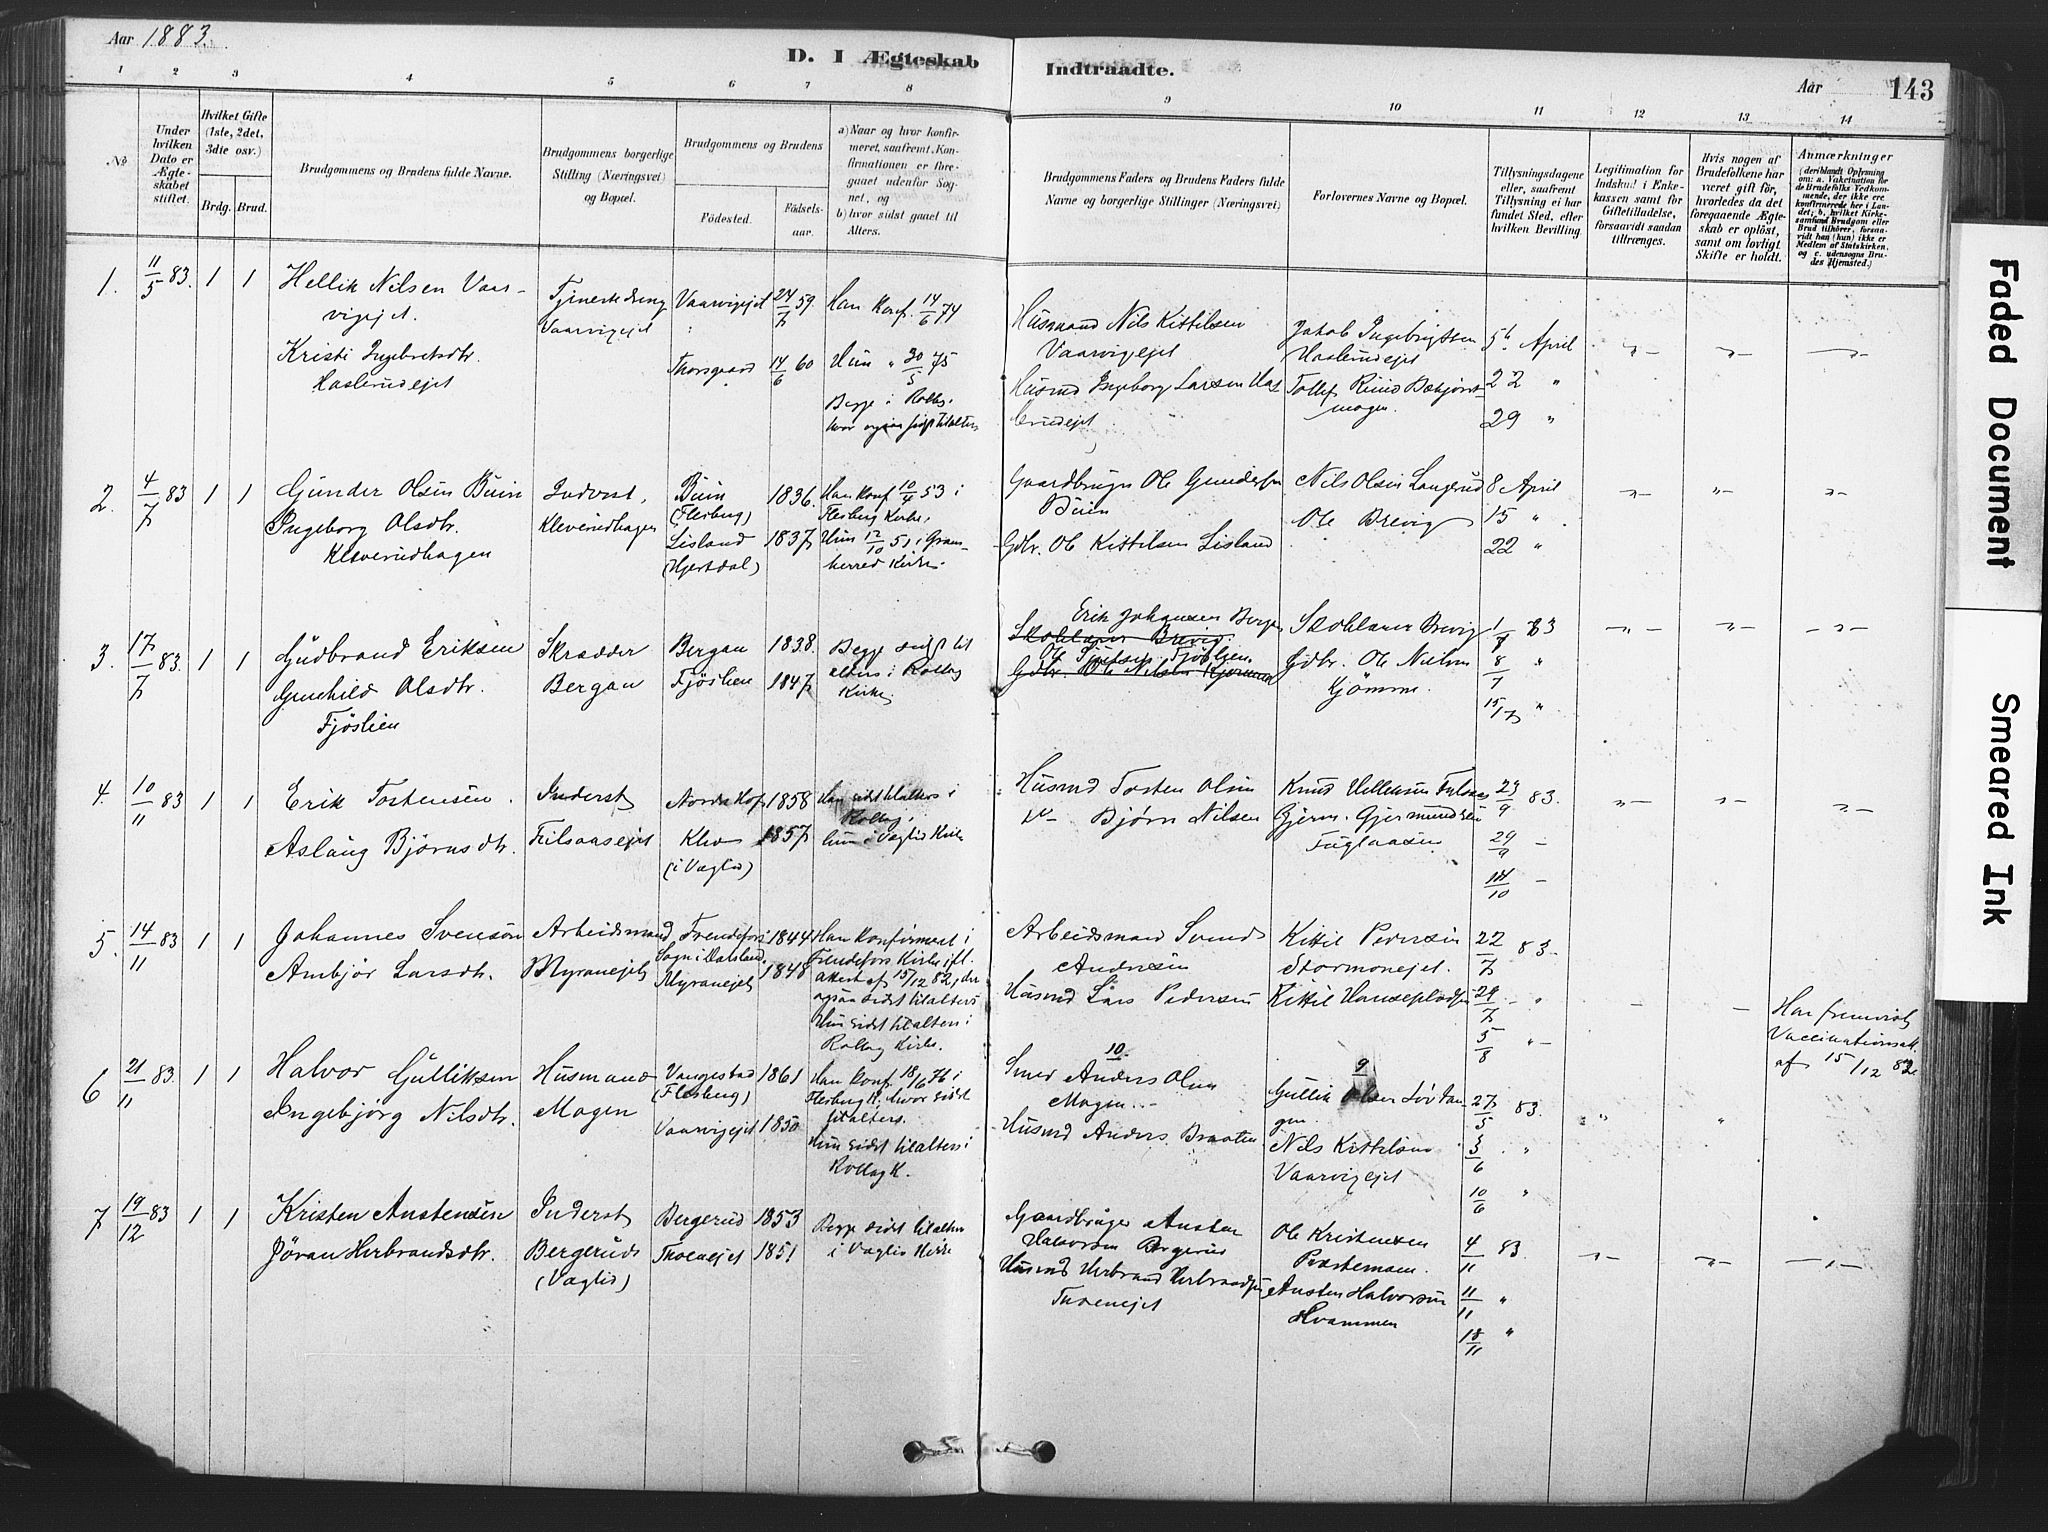 Aar 1883.
D. I Ægteskab Indtraadte.
Aar 143
1 2 3 4 5 6 7 8 9 10 11 12 13 14
No
Under hvilken Dato er Ægteskabet stiftet.
Hvilket Gifte (1ste, 2det, 3die osv.)
Brdg. Brud.
Brudgommens og Brudens fulde Navne.
Brudgommens borgerlige Stilling (Næringsvei) og Bopæl.
Brudgommens og Brudens
Fødested.
Fødselsaar.
a) Naar og hvor konfirmeret, saafremt Konfirmationen er foregaaet udenfor Sognet, og
b) hvor sidst gaaet til Alters.
Brudgommens Faders og Brudens Faders fulde Navne og borgerlige Stillinger (Næringsvei)
Forlovernes Navne og Bopæl.
Tillysningsdagene eller, saafremt Tillysning ei har fundet Sted, efter hvilken Bevilling.
Legitimation for Indskud i Enkekassen samt for Giftetilladelse, forsaavidt saadan tiltrænges.
Hvis nogen af Brudefolkene har været gift før, hvorledes da det foregaaende Ægteskab er opløst, samt om lovligt Skifte er holdt.
Anmærkninger (deriblandt Oplysning om: a. Vakcination for de Brudefolks Vedkommende, der ikke ere konfirmerede her i Landet; b. hvilket Kirkesamfund Brudgom eller Brud tilhører, forsaavidt han (hun) ikke er Medlem af Statskirken, og c. udensogns Brudes Hjemsted.)
1. 11/5 83. 1 1
Hellik Nilsen Vaarvigejet.
Kristi Ingebretsdtr. Haslerudejet
Tjenestedreng Vaarvigejet
Vaarvigejet 24/7 59.
Thorsgaard 14/6 60
Han Konf. 14/6 74
Hun " 30/5 75
Begge i Rollag,
Husmand Nils Kittilsen Vaarvigejet
Husmd Ingeborg Larsen Haslerudejet
Jakob Ingebrigtsen Haslerudejet
5te April
22 "
29 "
2. 4/7 83 1 1
Gunder Olsen Buin
Ingeborg Olsdtr. Kleverudhagen
Inderst, Kleverudhagen
Buin (Flesberg) 1836.
Lisland (Hjertdal) 1837
Han Konf 10/4 53 i Flesberg Kirke,
Hun 12/10 51 i Gransherred Kirke.
Gaardbruger Ole Gundersen Buin
Gdbr. Ole Kittilsen Lisland
Nils Olsen Langerud
Ole Brevig
8 April
15 "
22 "
3. 17/7 83. 1 1
Gudbrand Eriksen
Gunhild Olsdtr. Fjøslien
Skrædder Bergan
Bergan 1838.
Fjøslien 1847
Begge sidst til alters i Rollag Kirke
Erik Johansen Bergan
Skolelærer Brevig.
Gdbr. Ole Nilsen Kjømme
Skolelærer Brevig
Gdbr. Ole Nielsen Kjømme.
1/7 83
8/7 "
15/7 "
4. 10/11 83 1 1
Erik Tostensen.
Aslaug Bjørnsdtr.
Inderst
Nordre Hof 1858
(i Væglid) 1857
Han sidst tilalters i Rollag,
hun i Væglid Kirke
Husmd Tosten Olsen
Bjørn Nilsen
Gjerm. Gjermundsen
23/9 83.
29/9 -
14/10 -
5. 14/11 83 1 1
Johannes Svensøn
Ambjør Larsdtr.
Arbeidsmand Myranejet
Sogn i Dalsland, 1844
Myranejet 1848
Han Konfirmeret i
attest af 15/12 82, der ogsaa sidst tilalters
Hun sidst tilalters i Rollag Kirke.
Arbeidsmand Svend Andersen
Husmd Lars Pedersen
Kittil Pedersen Stormoejet.
22/7 83.
29/7 "
5/8 "
Har fremvist Vaccinationsatt. af 15/12 82.
6 21/11 83. 1 1
Halvor Gulliksen
Ingebjørg Nilsdtr.
Husmand Mogen
Vangestad (Flesberg) 1861
Vaarvigejet 1850
Han Konf. 18/6 76 i Flesberg K. hvor sidst tilalters.
Hun sidst tilalters i Rollag K.
10.
Anders Olsen Mogen.
Husmd Anders Braaten
9
Gullik Olsen
Nils Kittilsen Vaarvigejet
27/5 83.
3/6 "
10/6 "
7 19/12 83 1 1
Kristen Austensen
Jøran Herbrandsdtr.
Inderst Bergerud (Væglid)
Bergerud 1853
1851
Begge sidst tilalters i Væglid Kirke
Gaardbruger Austen Halvorsen Bergerud
Husmd Herbrand Herbrandsen
Ole Kristensen
Austen Halvorsen Hvammen
4/11 83
11/11 "
18/11 "
Faded Document
Smeared Ink